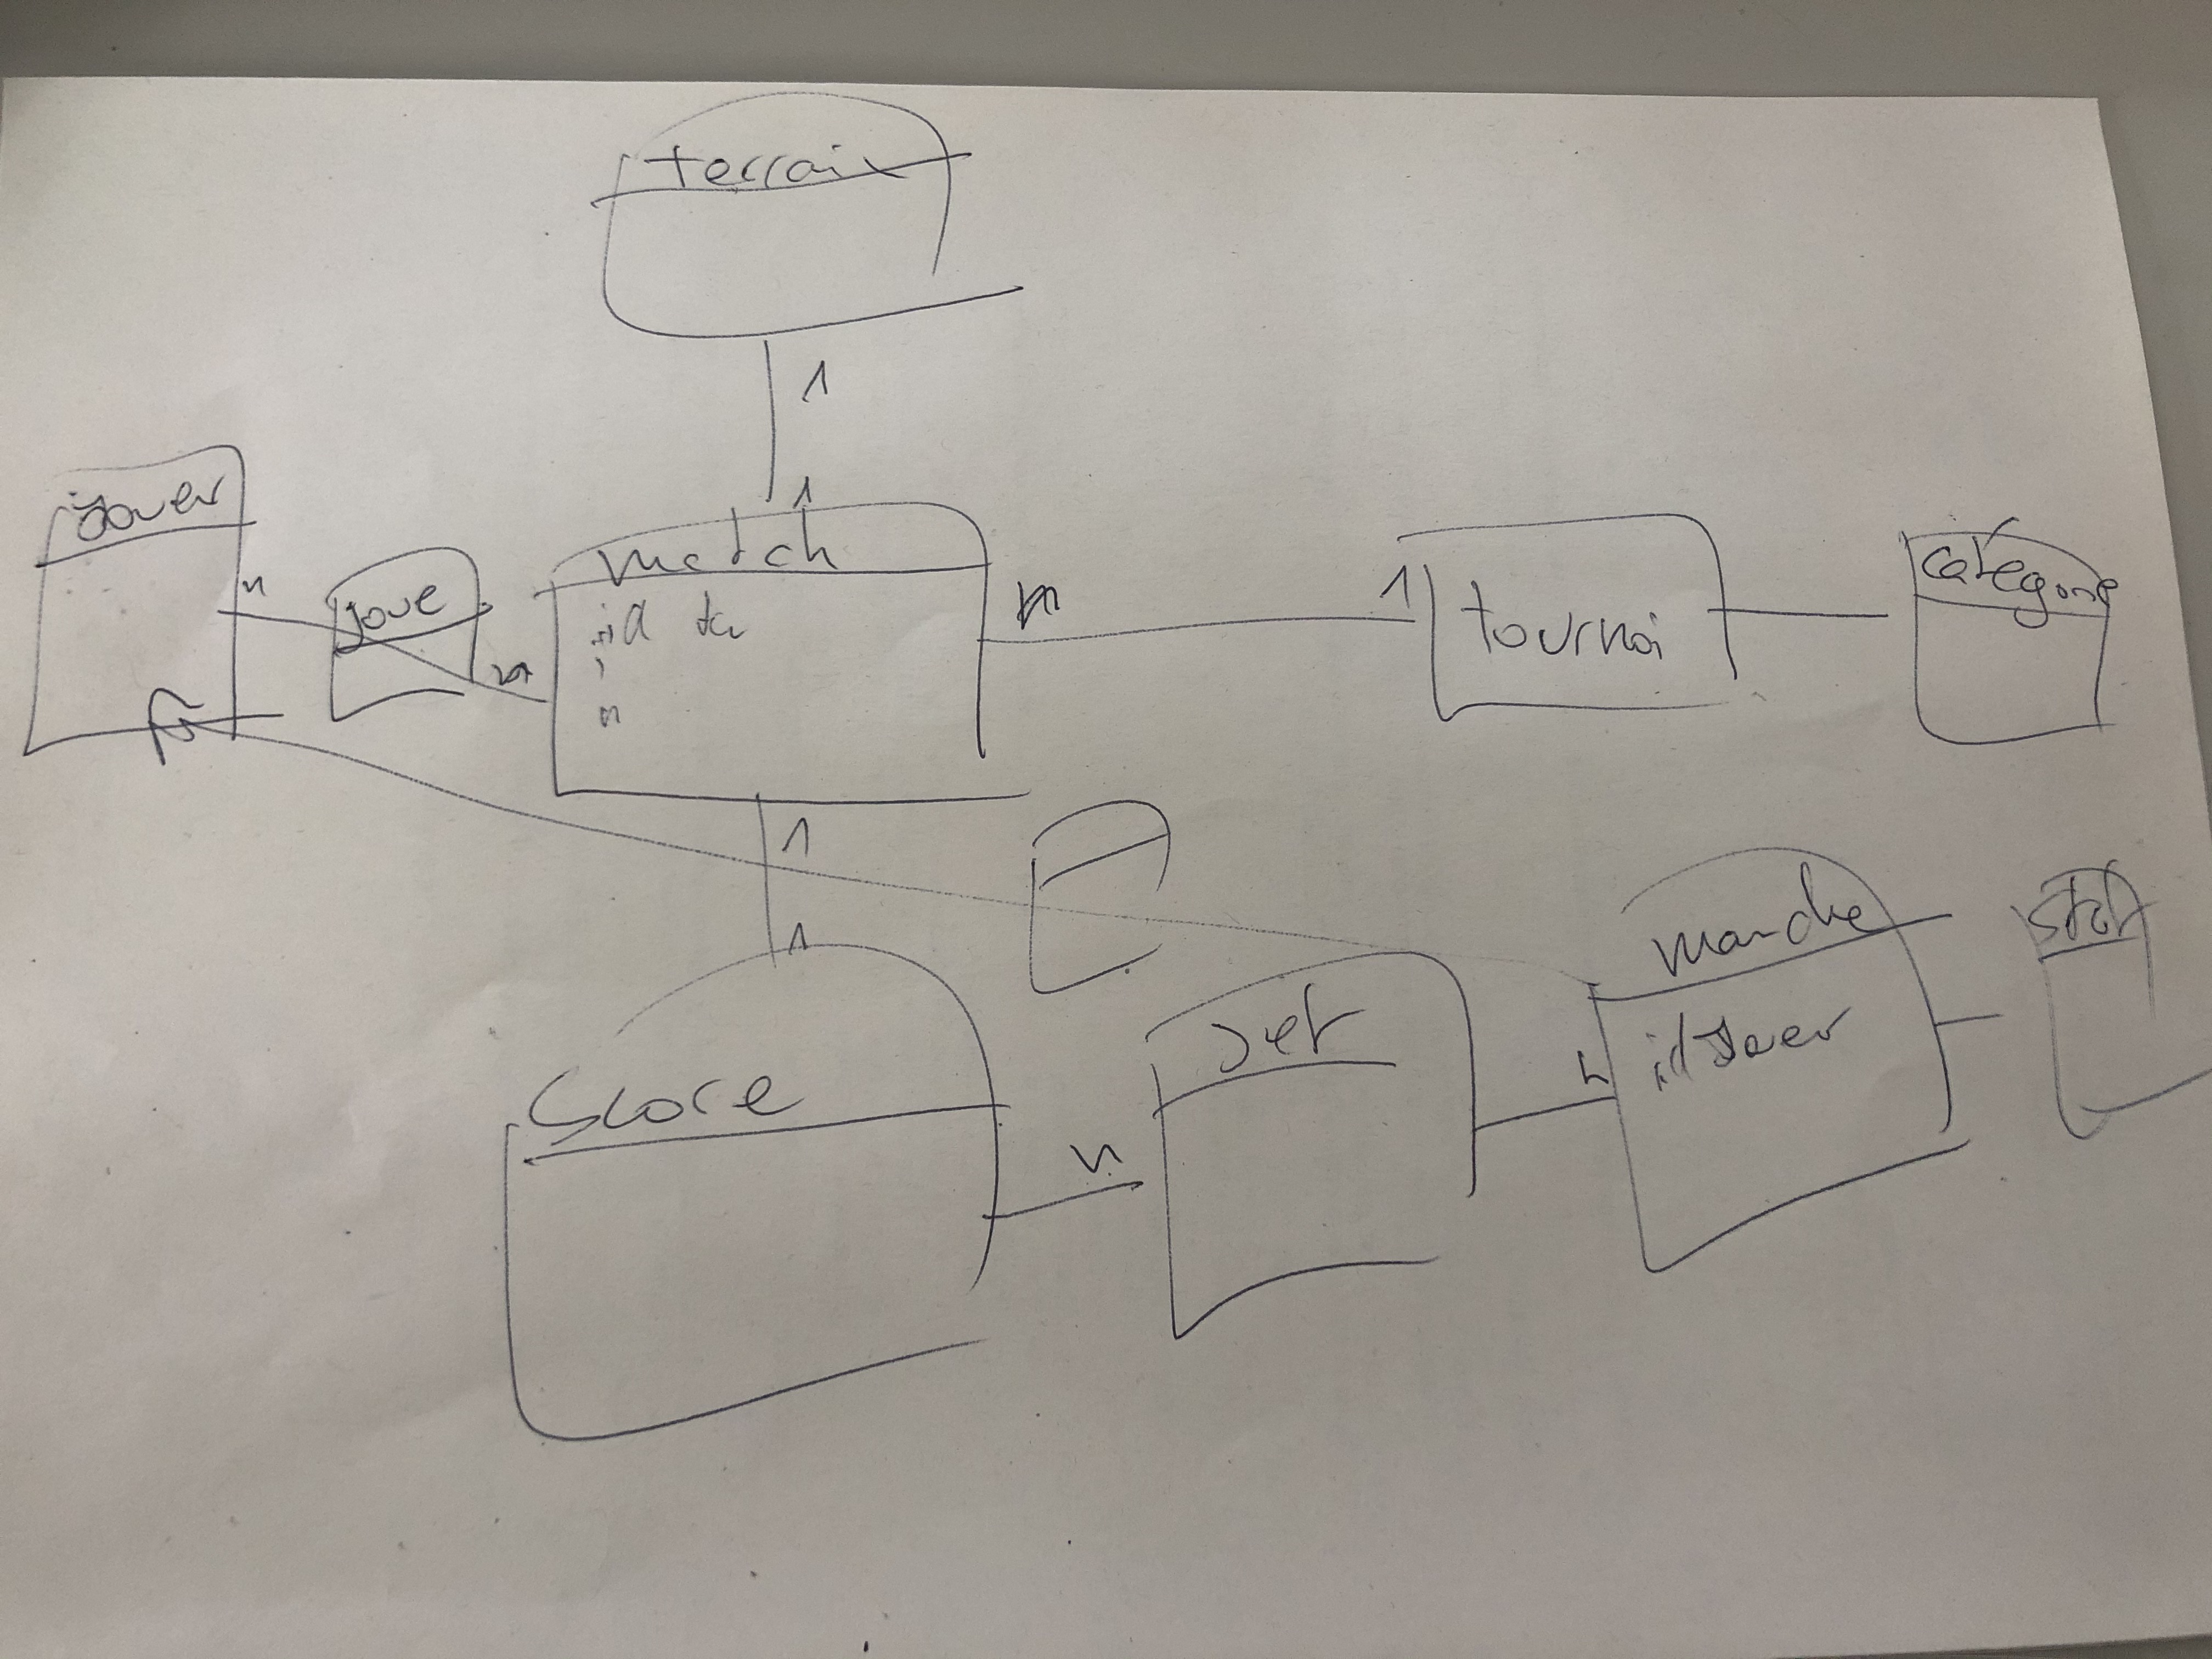 terrain
1
1
Jouer
n
joue
n
match
id
n
n
1
tournoi
categorie
1
1
Score
n
set
manche
idJouer
stat